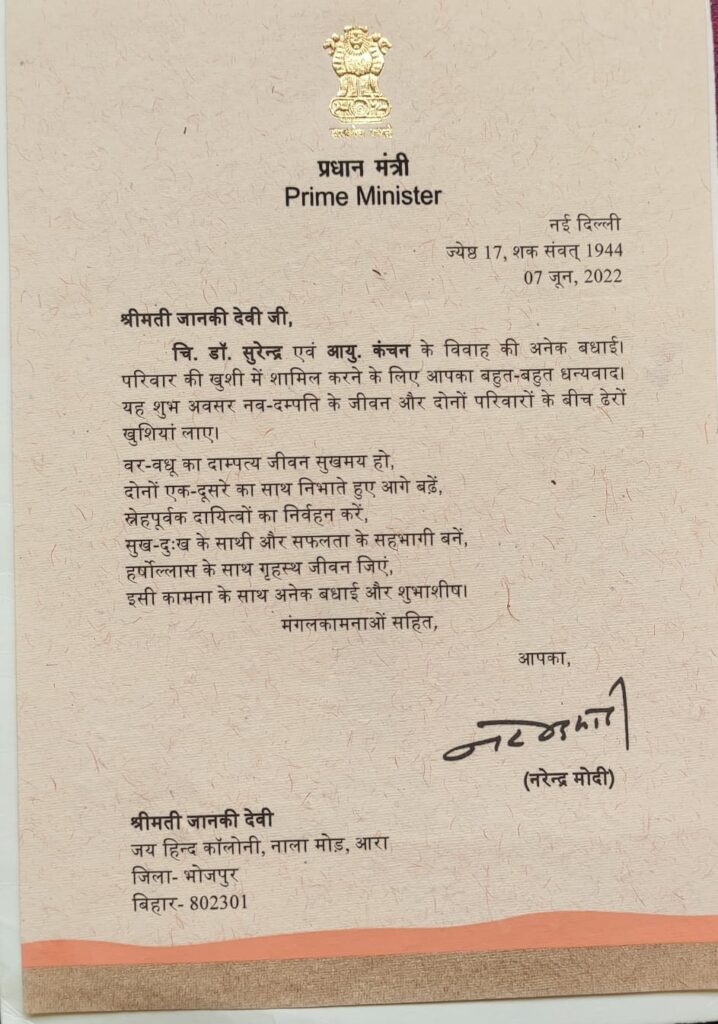 सत्यमेव जयते
प्रधान मंत्री
Prime Minister
नई दिल्ली
ज्येष्ठ 17, शक संवत् 1944
07 जून, 2022
श्रीमती जानकी देवी जी,
चि. डॉ. सुरेन्द्र एवं आयु. कंचन के विवाह की अनेक बधाई।
परिवार की खुशी में शामिल करने के लिए आपका बहुत-बहुत धन्यवाद।
यह शुभ अवसर नव-दम्पति के जीवन और दोनों परिवारों के बीच ढेरों
खुशियां लाए।
वर-वधू का दाम्पत्य जीवन सुखमय हो,
दोनों एक-दूसरे का साथ निभाते हुए आगे बढ़ें,
स्नेहपूर्वक दायित्वों का निर्वहन करें,
सुख-दुःख के साथी और सफलता के सहभागी बनें,
हर्षोल्लास के साथ गृहस्थ जीवन जिएं,
इसी कामना के साथ अनेक बधाई और शुभाशीष।
मंगलकामनाओं सहित,
आपका,
(नरेन्द्र मोदी)
श्रीमती जानकी देवी
जय हिन्द कॉलोनी, नाला मोड़, आरा
जिला- भोजपुर
बिहार- 802301